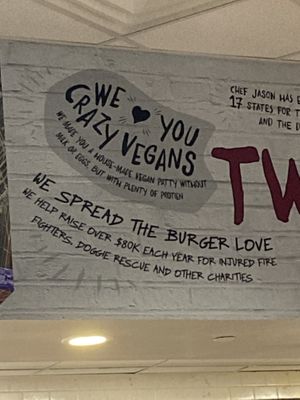 WE ♥ YOU
CRAZY VEGANS
WE MAKE YOU A HOUSE-MADE VEGAN PATTY WITHOUT
MILK OR EGGS, BUT WITH PLENTY OF PROTIEN
WE SPREAD THE BURGER LOVE
WE HELP RAISE OVER $80K EACH YEAR FOR INJURED FIRE
FIGHTERS, DOGGIE RESCUE AND OTHER CHARITIES
CHEF JASON HAS
17 STATES FOR
AND THE
TW